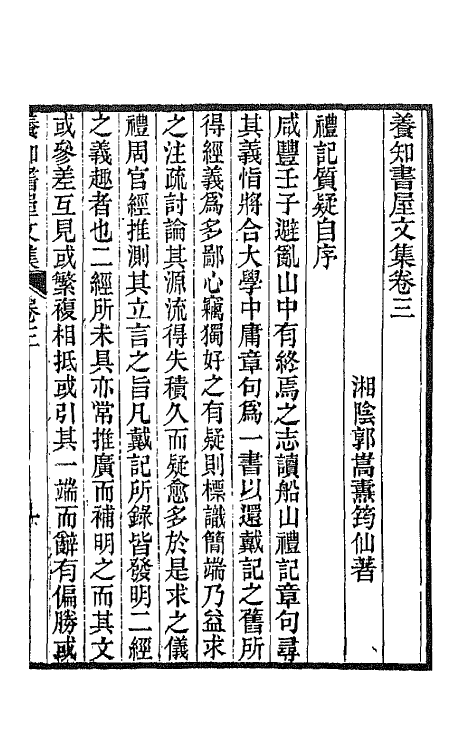 養知書屋文集卷三
湘陰郭嵩燾筠仙著
禮記質疑自序
咸豐壬子避亂山中有終焉之志讀船山禮記章句尋
其義恉將合大學中庸章句為一書以還戴記之舊所
得經義爲多鄙心竊獨好之有疑則標識簡端乃益求
之注疏討論其源流得失積久而疑愈多於是求之儀
禮周官經推測其立言之旨凡戴記所錄皆發明二經
之義趣者也二經所未具亦常推廣而補明之而其文
或參差互見或繁複相抵或引其一端而辭有偏勝或
養知書屋文集 卷三